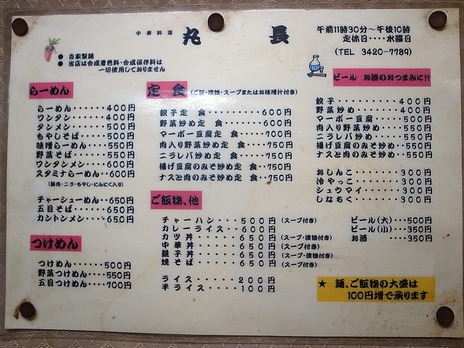 中華料理 丸長
午前11時30分～午後10時
定休日‥‥水曜日
(TEL 3420-7789)
● 自家製麺
● 当店は合成着色料・合成保存料は
一切使用しておりません
らーめん
らーめん‥‥‥400円
ワンタン‥‥‥400円
タンメン‥‥‥500円
もやしそば‥‥500円
味噌らーめん‥550円
野菜そば‥‥‥550円
ワンタンメン‥600円
スタミナらーめん‥600円
(豚肉・ニラ・もやし・にんにく入り)
チャーシューめん‥650円
五目そば‥‥‥650円
カントンメン‥650円
つけめん
つけめん‥‥‥500円
野菜つけめん‥550円
五目つけめん‥700円
定食 (ご飯・漬物・スープまたはお味噌汁付き)
餃子定食‥‥‥600円
野菜炒め定食‥‥‥600円
マーボー豆腐定食‥‥700円
肉入り野菜炒め定食‥‥750円
ニラレバ炒め定食‥‥750円
揚げ豆腐のみそ炒め定食‥750円
ナスと肉のみそ炒め定食‥750円
ご飯物、他
チャーハン‥‥‥500円(スープ付き)
カレーライス‥‥600円
カツ丼‥‥‥650円(スープ・漬物付き)
中華丼‥‥‥650円(スープ・漬物付き)
親子丼‥‥‥650円(スープ・漬物付き)
焼そば‥‥‥650円(スープ付き)
ライス‥‥‥200円
半ライス‥‥100円
ビール お酒のおつまみに!!
餃子‥‥‥400円
野菜炒め‥‥‥400円
マーボー豆腐‥‥500円
肉入り野菜炒め‥‥550円
ニラレバ炒め‥‥550円
揚げ豆腐のみそ炒め‥550円
ナスと肉のみそ炒め‥550円
おしんこ‥‥‥300円
冷やっこ‥‥‥300円
シュウマイ‥‥300円
しなちく‥‥‥300円
ビール(大)‥‥500円
ビール(小)‥‥350円
お酒‥‥‥350円
★ 麺、ご飯物の大盛は
100円増で承ります